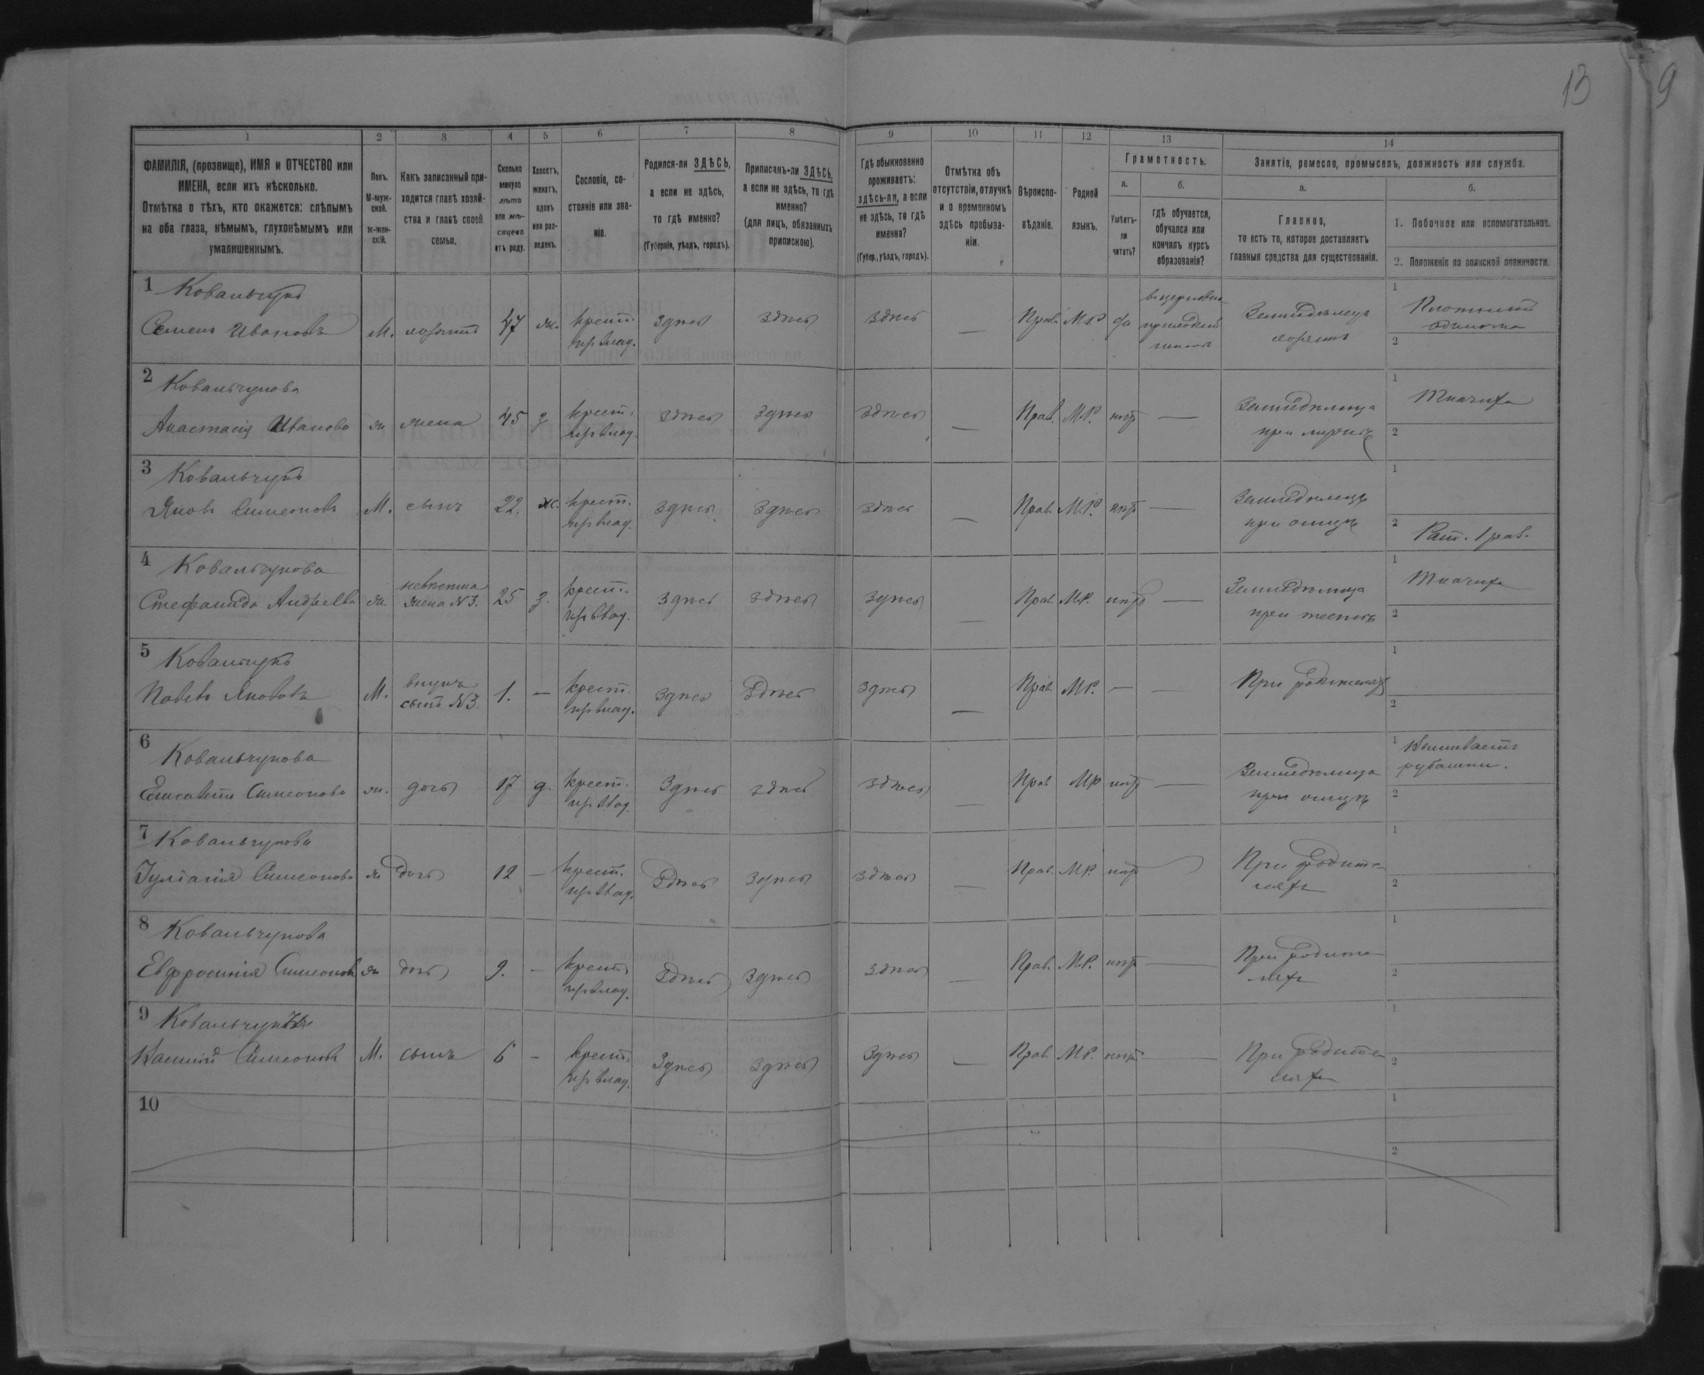 13 9
1 2 3 4 5 6 7 8 9 10 11 12 13 14
ФАМИЛІЯ, (прозвище), ИМЯ и ОТЧЕСТВО или ИМЕНА, если ихъ нѣсколько.
Отмѣтка о тѣхъ, кто окажется: слѣпымъ на оба глаза, нѣмымъ, глухонѣмымъ или умалишеннымъ.
Полъ. М-мужской. ж-женскій.
Какъ записанный приходится главѣ хозяйства и главѣ своей семьи.
Сколько минуло лѣтъ или мѣсяцевъ отъ роду.
Холостъ, женатъ, вдовъ или разведенъ.
Сословіе, состояніе или званіе.
Родился-ли ЗДѢСЬ, а если не здѣсь, то гдѣ именно?
(Губернія, уѣздъ, городъ).
Приписанъ-ли ЗДѢСЬ, а если не здѣсь, то гдѣ именно?
(для лицъ, обязанныхъ припискою).
Гдѣ обыкновенно проживаетъ: здѣсь-ли, а если не здѣсь, то гдѣ именно?
(Губер., уѣздъ, городъ).
Отмѣтка объ отсутствіи, отлучкѣ и о временномъ здѣсь пребываніи.
Вѣроисповѣданіе.
Родной языкъ.
Грамотность.
а.
Умѣетъ-ли читать?
б.
гдѣ обучается, обучался или кончилъ курсъ образованія?
Занятіе, ремесло, промыселъ, должность или служба.
а.
Главное, то есть то, которое доставляетъ главныя средства для существованія.
б.
1. Побочное или вспомогательное.
2. Положеніе по воинской повинности.
1 Ковальчукъ
Семенъ Ивановъ М. хозяинъ 47 ж. крест. из влад. здѣсь здѣсь здѣсь — Прав. М.Р. да въ церковно приходской школѣ Земледѣлецъ хозяинъ 1 Плотникъ одиночка 2
2 Ковальчукова
Анастасія Иванова ж жена 45 з крест. из влад. здѣсь здѣсь здѣсь — Прав. М.Р. нѣтъ — Земледѣлица при мужѣ 1 Ткачиха 2
3 Ковальчукъ
Яковъ Симеоновъ М. сынъ 22. ж. крест. из влад. здѣсь здѣсь здѣсь — Прав. М.Р. нѣтъ — Земледѣлецъ при отцѣ 1 2 Рат. 1 раз.
4 Ковальчукова
Стефанида Андреева ж. невѣстка жена N3. 25 з. крест. из влад. здѣсь здѣсь здѣсь — Прав. М.Р. нѣтъ — Земледѣлица при тестѣ 1 Ткачиха 2
5 Ковальчукъ
Павелъ Якововъ М. внукъ сынъ N3. 1. — крест. из влад. здѣсь здѣсь здѣсь — Прав. М.Р. — — При родителяхъ 1 2
6 Ковальчукова
Елисавета Симеонова ж. дочь 17 д. крест. из влад. здѣсь здѣсь здѣсь — Прав. М.Р. нѣтъ — Земледѣлица при отцѣ 1 Вышиваетъ рубашки. 2
7 Ковальчукова
Іуліанія Симеонова ж дочь 12 — крест. из влад. здѣсь здѣсь здѣсь — Прав. М.Р. нѣтъ — При родителяхъ 1 2
8 Ковальчукова
Евфросинія Симеонова ж дочь 9. — крест. из влад. здѣсь здѣсь здѣсь — Прав. М.Р. нѣтъ — При родителяхъ 1 2
9 Ковальчукъ
Симеоновъ М. сынъ 6 — крест. из влад. здѣсь здѣсь здѣсь — Прав. М.Р. нѣтъ — При родителяхъ 1 2
10 1 2